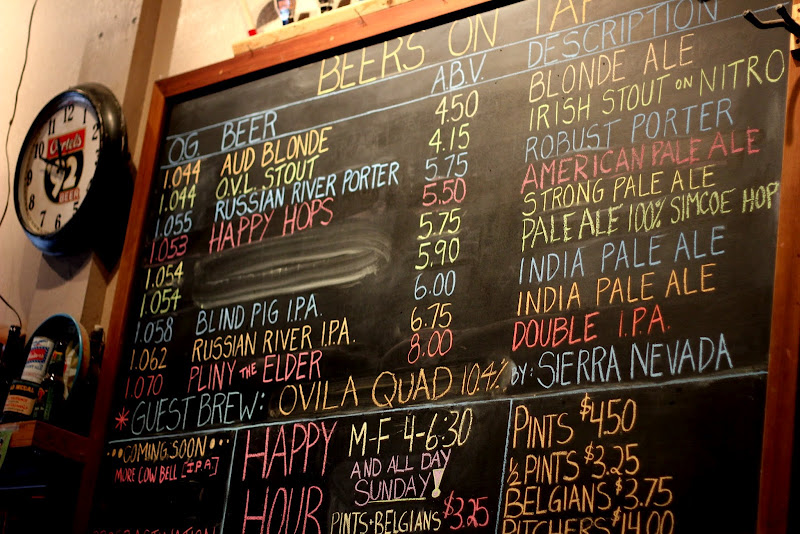 BEERS ON TAP
O.G. BEER A.B.V. DESCRIPTION
1.044 AUD BLONDE 4.50 BLONDE ALE
1.044 O.V.L. STOUT 4.15 IRISH STOUT ON NITRO
1.055 RUSSIAN RIVER PORTER 5.75 ROBUST PORTER
1.053 HAPPY HOPS 5.50 AMERICAN PALE ALE
1.054 5.75 STRONG PALE ALE
1.054 5.90 PALE ALE 100% SIMCOE HOP
1.058 BLIND PIG I.P.A. 6.00 INDIA PALE ALE
1.062 RUSSIAN RIVER I.P.A. 6.75 INDIA PALE ALE
1.070 PLINY THE ELDER 8.00 DOUBLE I.P.A.
* GUEST BREW: OVILA QUAD 10.4% BY: SIERRA NEVADA
COMING SOON
MORE COW BELL [I.P.A]
HAPPY HOUR
M-F 4-6:30
AND ALL DAY
SUNDAY!
PINTS + BELGIANS $3.25
PINTS $4.50
½ PINTS $3.25
BELGIANS $3.75
PITCHERS $14.00
Oertels
92
BEER
12
1
2
3
4
5
6
7
8
9
10
11